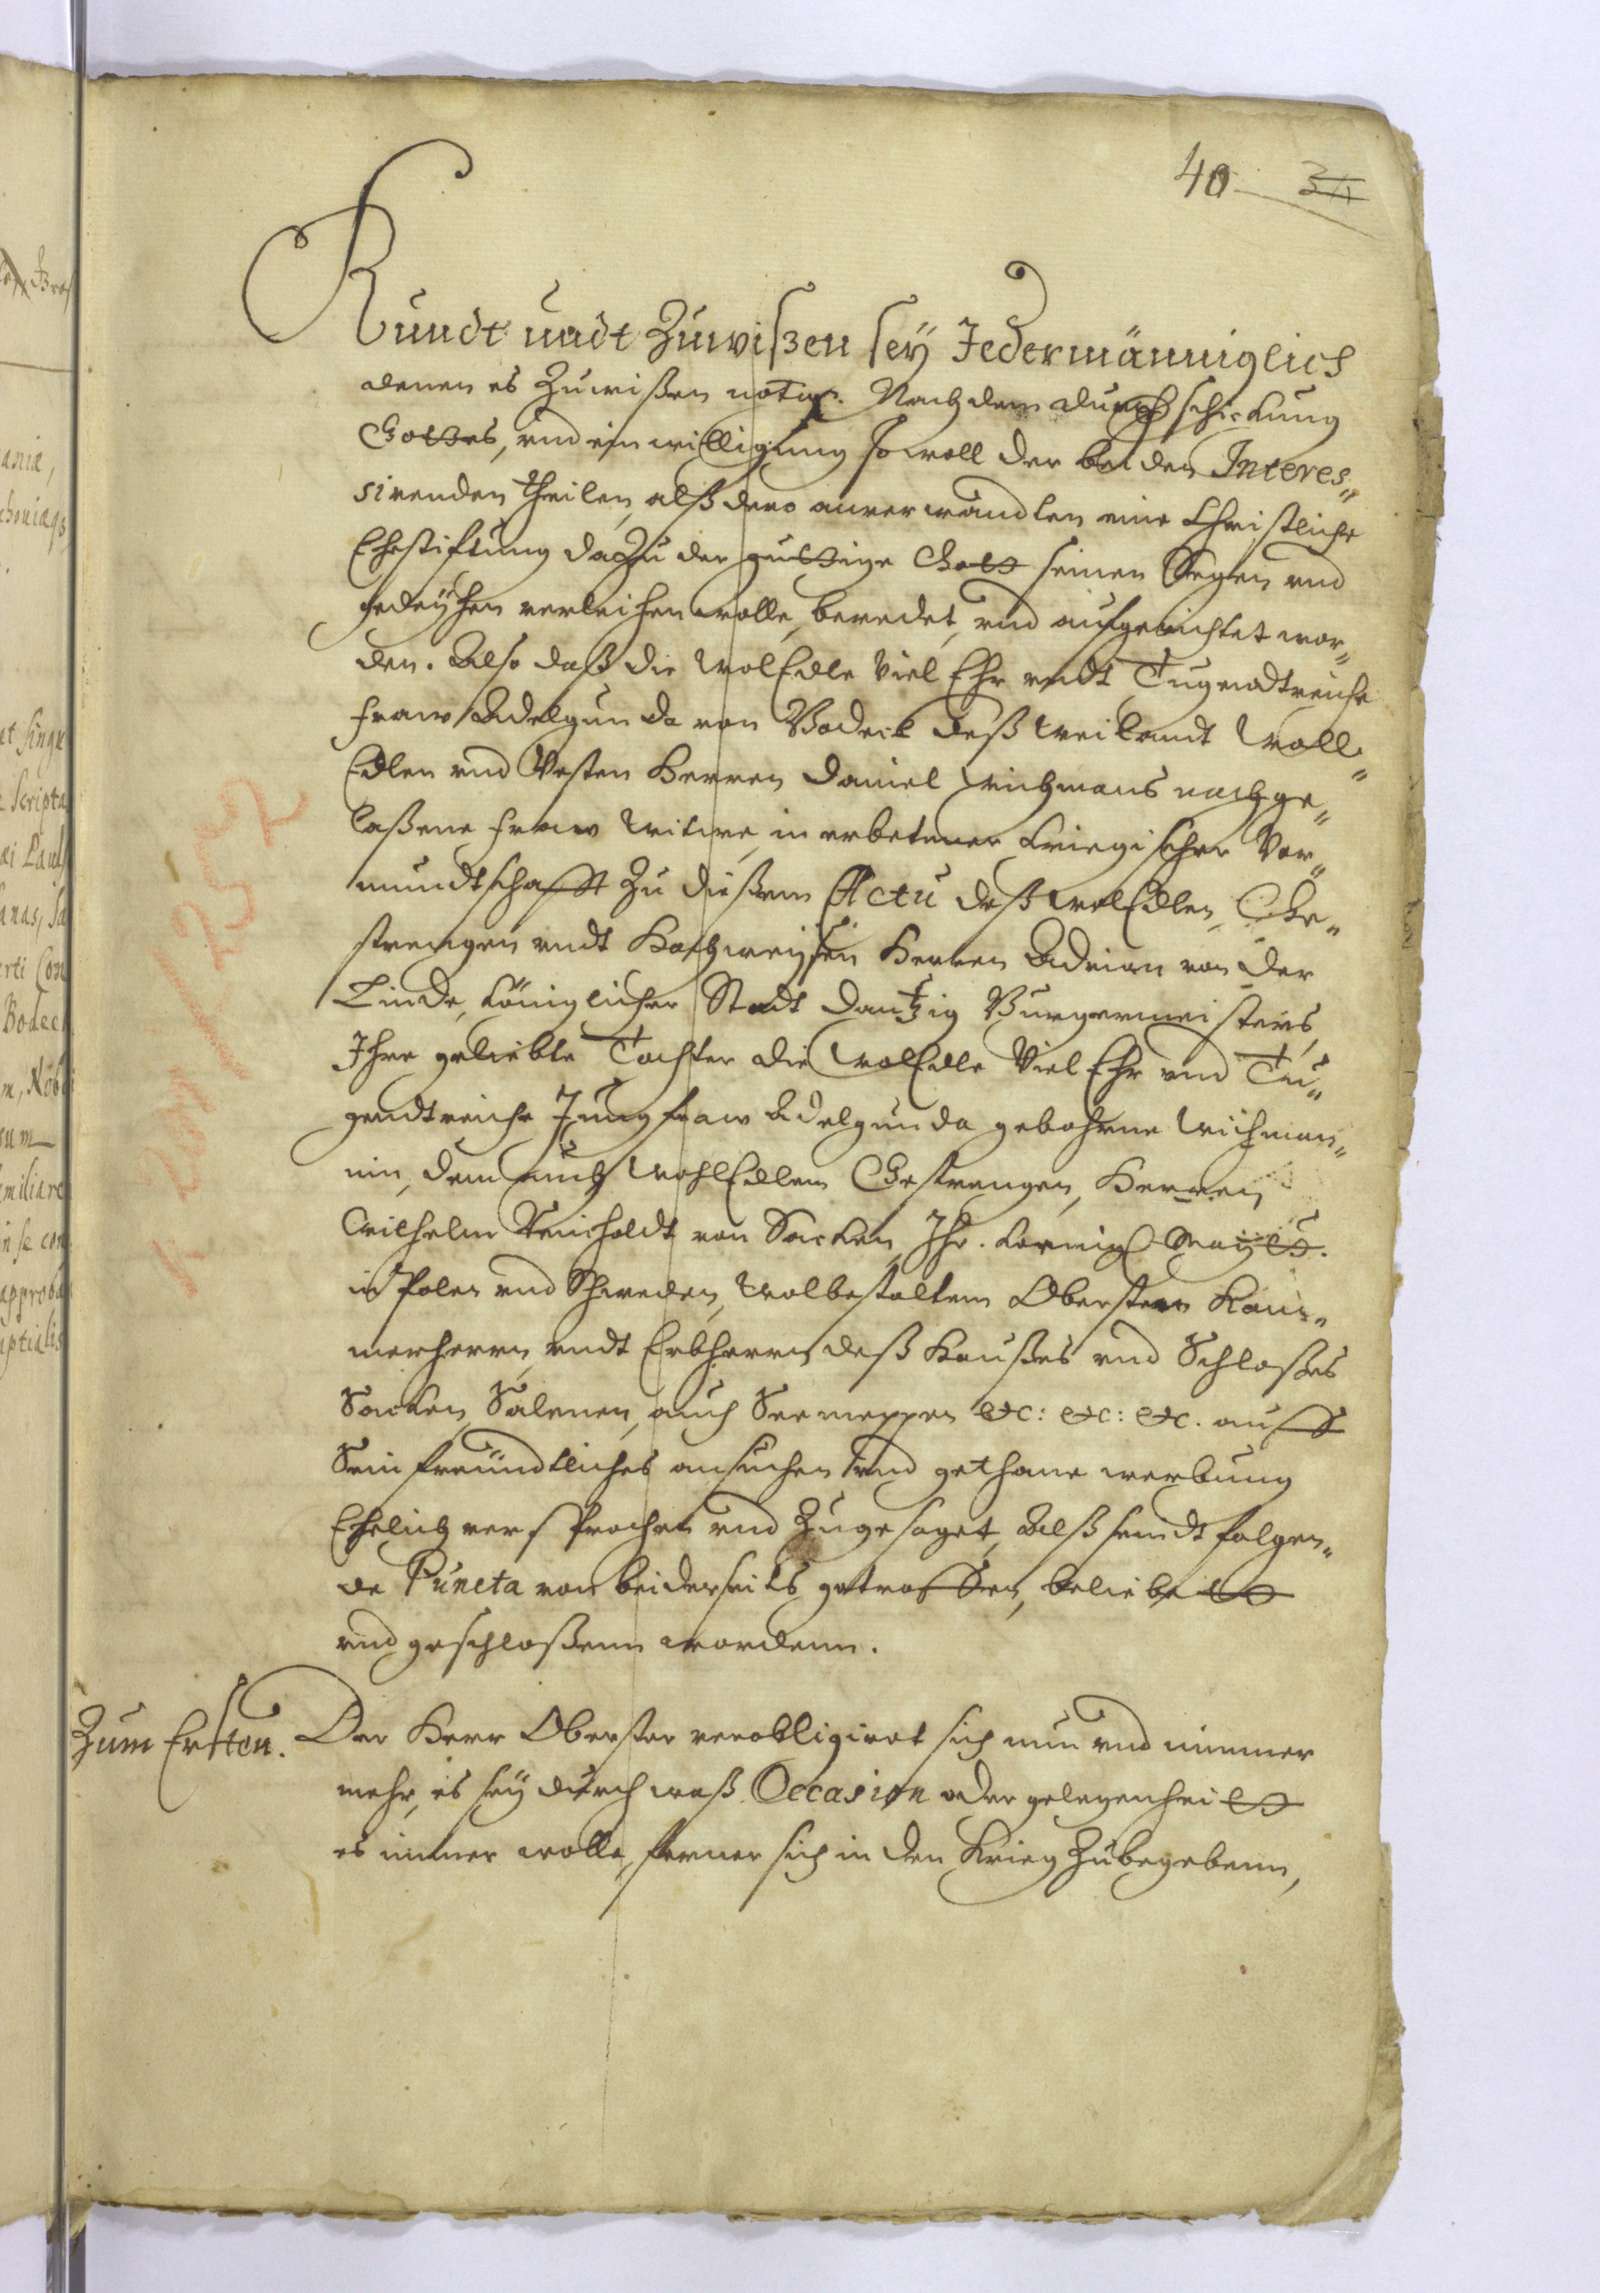 40 34
Kundt undt Zuwißen seÿ Jedermänniglich
denen es Zuwißen nötig. Nachdem durch schickung
Gottes, und einwilligung sowoll der beiden Interes„
sirenden theilen, alß dero anverwandten eine Christliche
Ehestiftung dazu der guttige Gott seinen Segen und
gedeÿhen verleihen wolle, beredet, und aufgerichtet wor„
den. Also daß die WolEdle Viel Ehr undt Tugendtreiche
fraw Adelgunda von Bodeck deß weilandt Woll„
Edlen und Vesten Herren Daniel Wichmans nachge„
laßene fraw Witwe, in erbetener Kriegischer Vor„
mundtschafft Zu dießem Actu deß WolEdlen, Ge„
strengen undt Hochweÿsen Herren Adrian von der
Linde, Königlicher Stadt Dantzig Burgermeisters,
Ihre geliebte Tochter die WolEdle Viel Ehr und Tu„
gendtreiche Jungfraw Adelgunda gebohrne Wichman„
nin, dem auch WohlEdlem Gestrengen, Herren
Wilhelm Reinholdt von Sacken, Ihr. Koenigl Maÿtt.
in Polen und Schweden, Wolbestaltem Obersten Kam„
merherrn, undt Erbherrn deß Haußes und Schloßes
Sacken, Salenen, auch Seemeppen etc: etc: etc. auff
Sein freundtliches ansuchen und gethane werbung
Ehelich versprochen und Zugesaget, Alß seindt folgen„
de Puncta von beiderseits getroffen, beliebett
und geschloßenn wordenn.
Zum Ersten. Der Herr Oberster verobligiret sich nun und nimmer
mehr, es seÿ durch waß Occasion oder gelegenheitt
es immer wolle, ferner sich in den Krieg Zubegebenn,